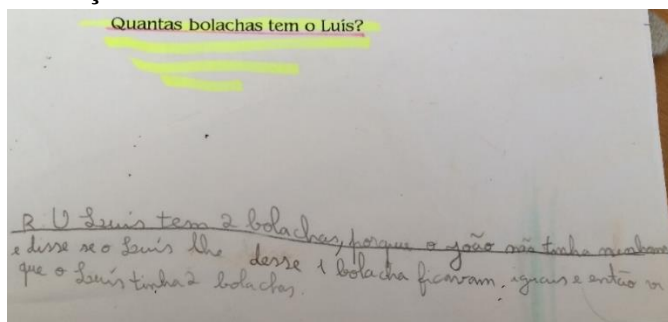 Quantas bolachas tem o Luís?
R: O Luís tem 2 bolachas, porque o joão não tinha nenhuma
e disse se o Luís lhe desse 1 bolacha ficavam. iguais e então vi
que o Luís tinha 2 bolachas.